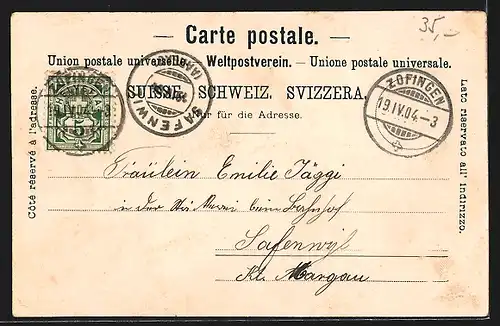 35,-
— Carte postale. —
Union postale universelle. Weltpostverein. – Unione postale universale.
SUISSE. SCHWEIZ. SVIZZERA.
Nur für die Adresse.
ZOFINGEN
5
SAFENWIL
ZOFINGEN
19.IV.04.-3
Côté réservé à l'adresse.
Lato riservato all' indirizzo.
Fräulein Emilie Jäggi
in der beim Bahnhof
Safenwyl
Kt. Aargau